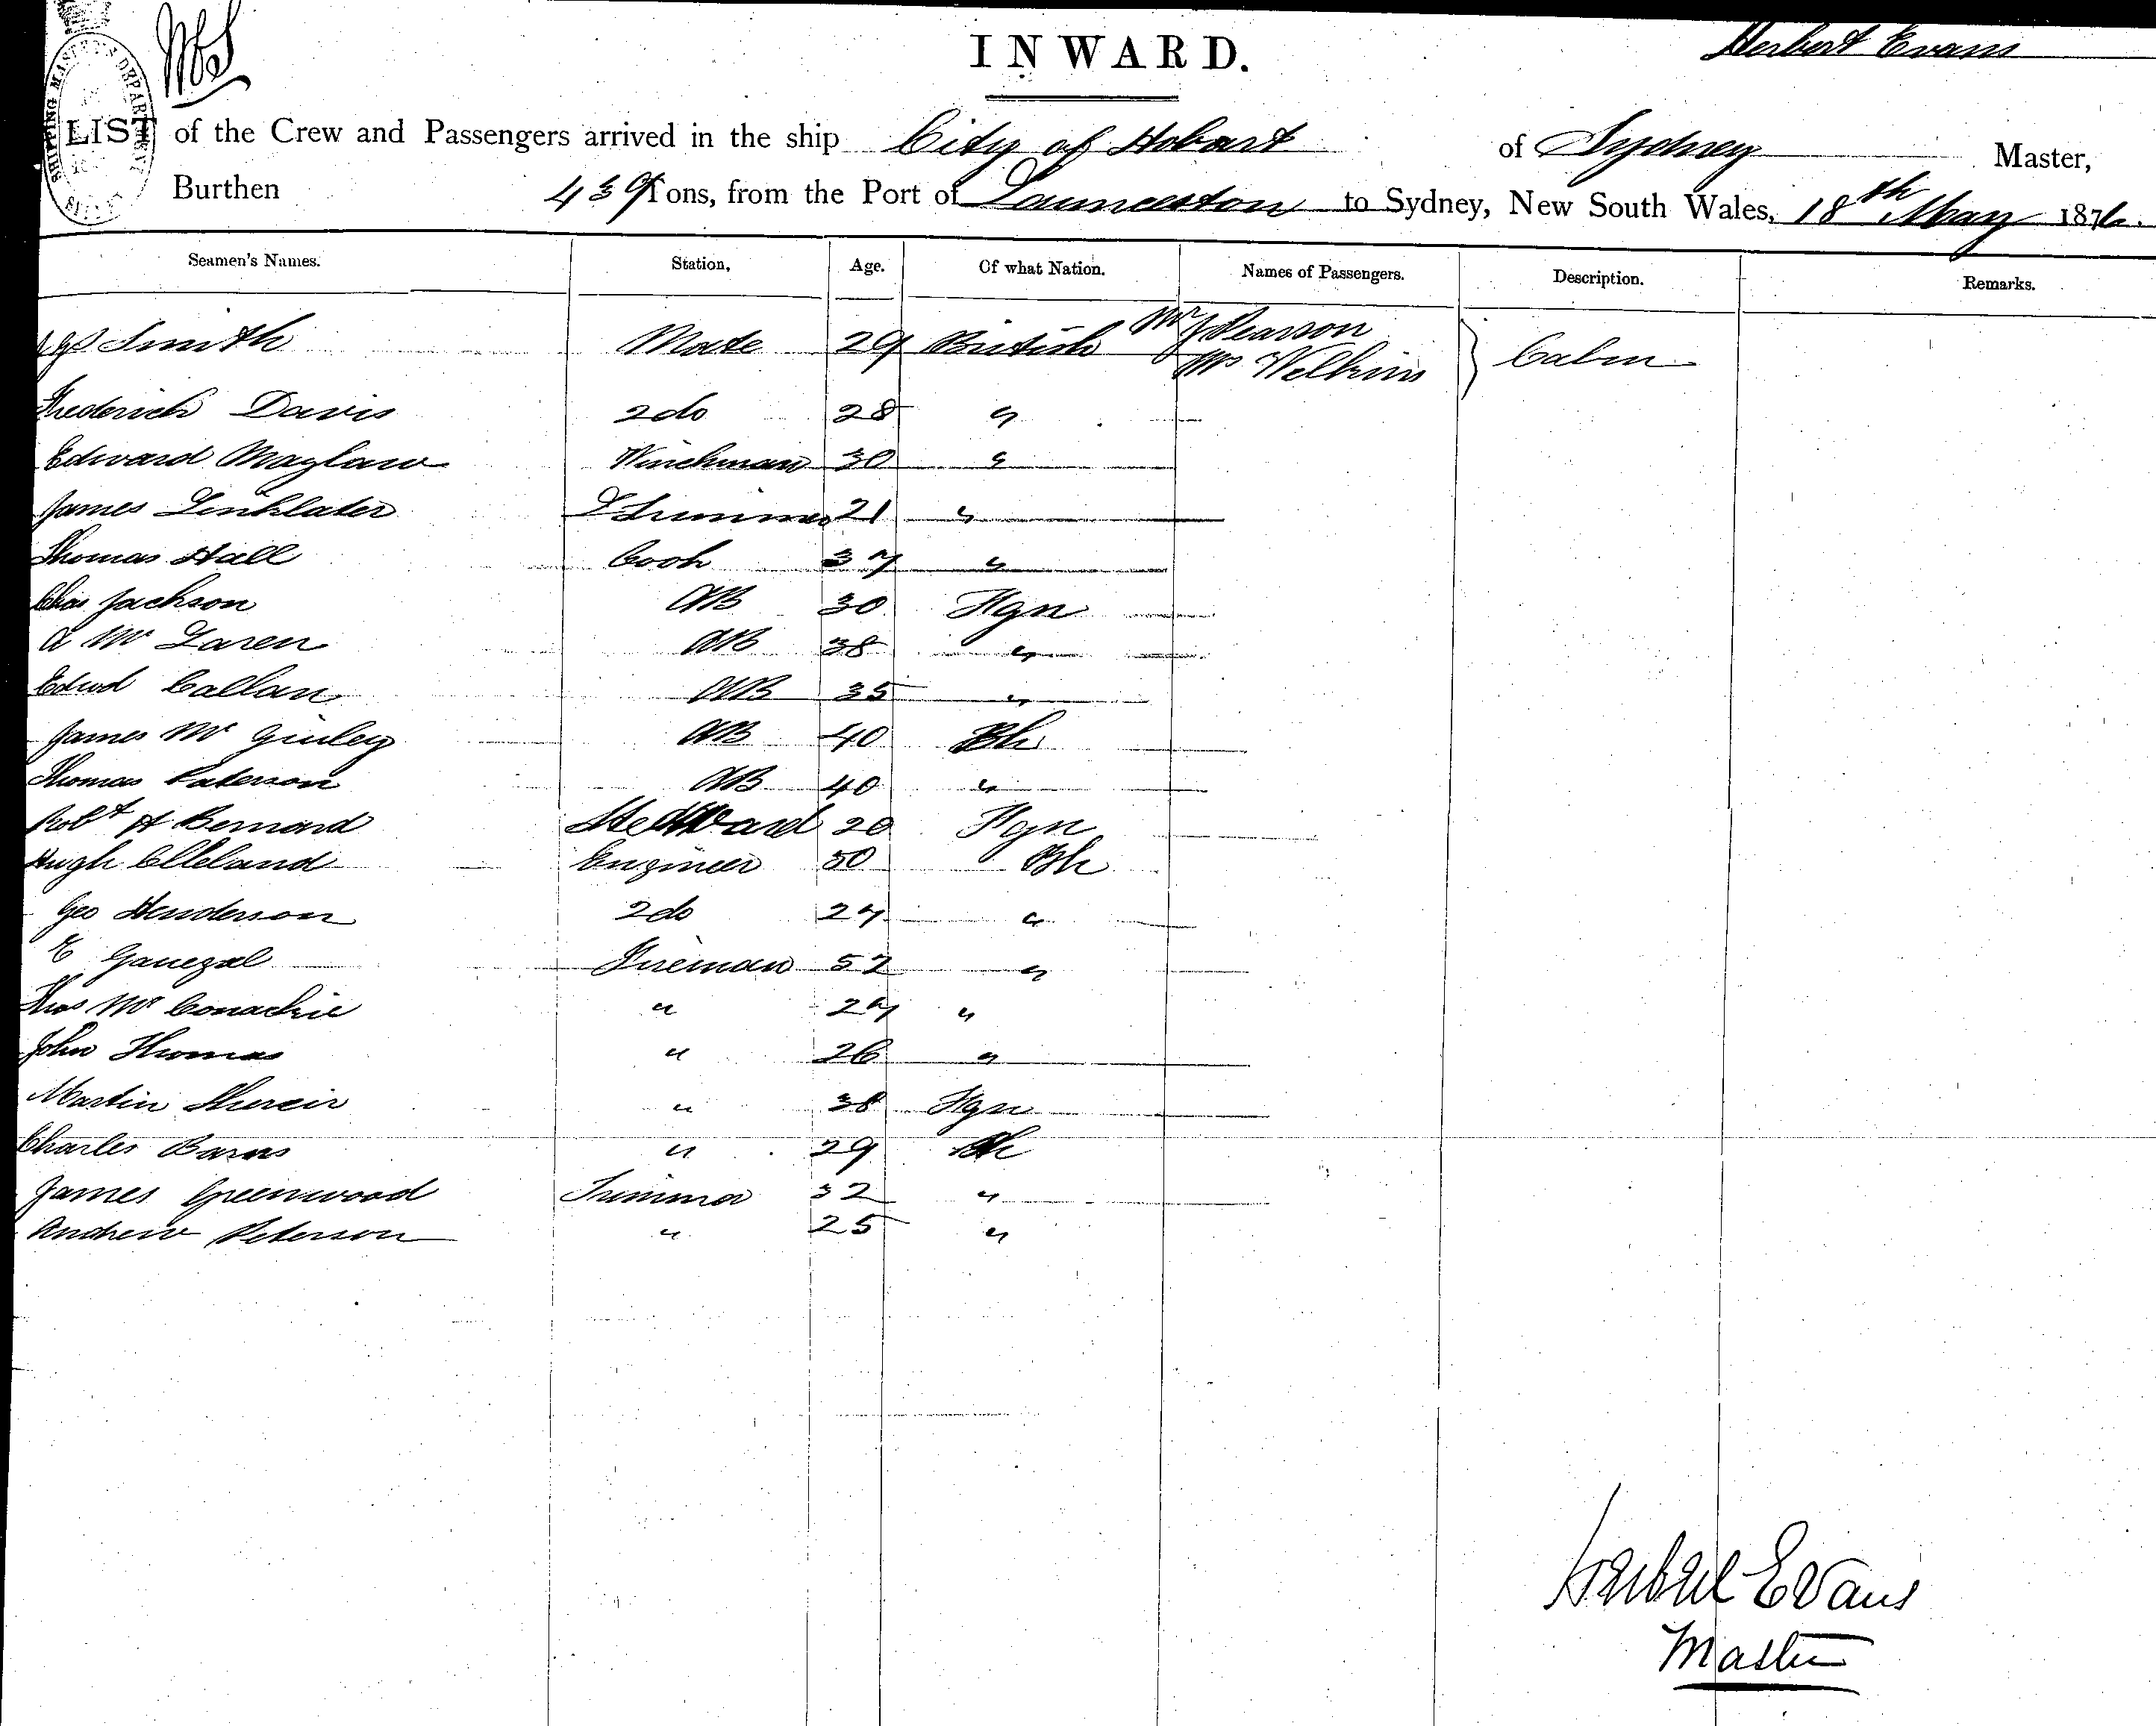 INWARD.
Herbert Evans
LIST of the Crew and Passengers arrived in the ship City of Hobart of Sydney Master,
Burthen 439 Tons, from the Port of Launceston to Sydney, New South Wales, 18th May 1876.
Seamen's Names. Station, Age. Of what Nation. Names of Passengers. Description. Remarks.
Smith Mate 29 British Mr Pearson
Mr Welkins } Cabin
Frederich Davis 2do 28 "
Edward Maglaw Winchman 30 "
James Linklater 21 "
Thomas Hall Cook 37 "
Chas Jackson AB 30 Fgn
A Mc Laren AB 38 "
Edwd Callan AB 35 "
James Mc Ginley AB 40 Bh
Thomas Paterson AB 40 "
Robt H Bernard Steward 20 Fgn
Hugh Clleland Engineer 50 Bh
Geo Henderson 2do 27 "
E Fireman 52 "
Thos Mc Conachie " 27 "
John Thomas " 26 "
Martin " 38 Fgn
Charles Barns " 29 Bh
James Greenwood Trimmer 32 "
Andrew Peterson " 25 "
Herbert Evans
Master